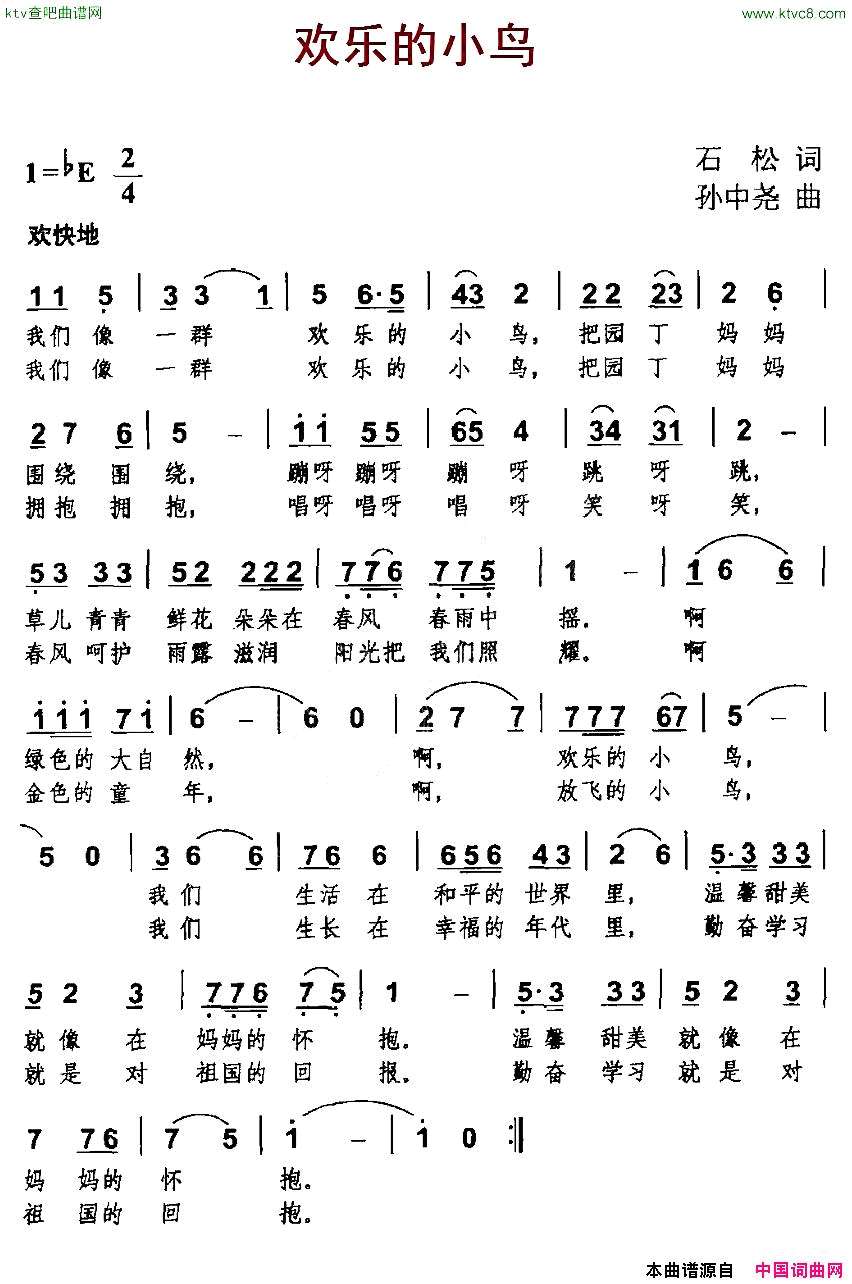 ktv查吧曲谱网
www.ktvc8.com
欢乐的小鸟
1=♭E 2/4
石 松 词
孙中尧 曲
欢快地
1 1 5 | 3 3 1 | 5 6·5 | 43 2 | 22 23 | 2 6 |
我们 像 一 群 欢 乐 的 小 鸟, 把园 丁 妈 妈
我们 像 一 群 欢 乐 的 小 鸟, 把园 丁 妈 妈
2 7 6 | 5 – | i i 55 | 65 4 | 34 31 | 2 – |
围 绕 围 绕, 蹦呀 蹦呀 蹦 呀 跳 呀 跳,
拥 抱 拥 抱, 唱呀 唱呀 唱 呀 笑 呀 笑,
53 33 | 52 222 | 776 775 | 1 – | 1 6 6 |
草儿 青青 鲜花 朵朵在 春风 春雨中 摇。 啊
春风 呵护 雨露 滋润 阳光把 我们照 耀。 啊
i i i 7 i | 6 – | 6 0 | 2 7 7 | 777 67 | 5 – |
绿色的 大自 然, 啊, 欢乐的 小 鸟,
金色的 童 年, 啊, 放飞的 小 鸟,
5 0 | 3 6 6 | 76 6 | 656 43 | 2 6 | 5·3 33 |
我 们 生活 在 和平的 世界 里, 温 馨 甜美
我 们 生长 在 幸福的 年代 里, 勤 奋 学习
5 2 3 | 776 75 | 1 – | 5·3 33 | 5 2 3 |
就 像 在 妈妈的 怀 抱。 温 馨 甜美 就 像 在
就 是 对 祖国的 回 报。 勤 奋 学习 就 是 对
7 776 | 7 5 | i – | i 0 :|
妈 妈的 怀 抱。
祖 国的 回 抱。
本曲谱源自 中国词曲网